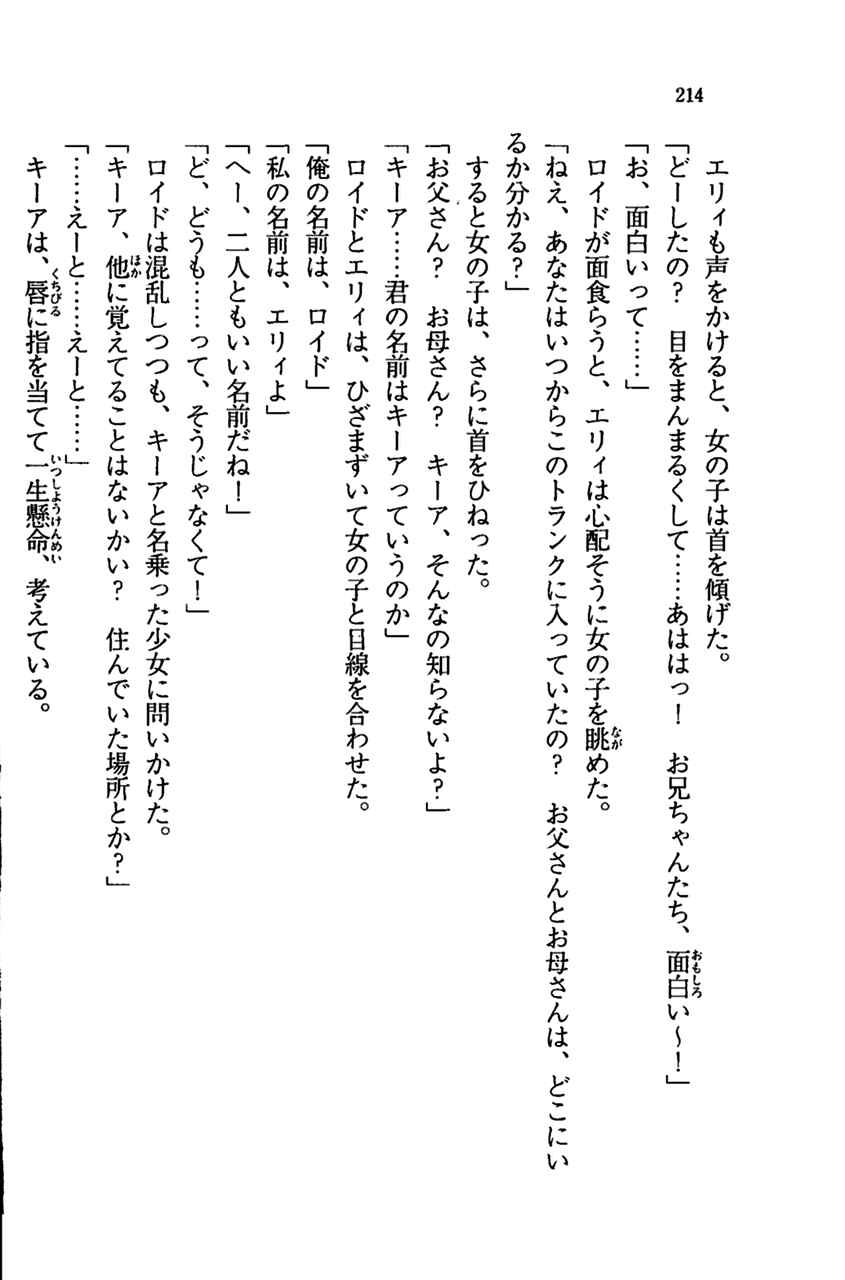 214
エリィも声をかけると、女の子は首を傾げた。
「どーしたの？　目をまんまるくして……あははっ！　お兄ちゃんたち、面白い～！」
「お、面白いって……」
ロイドが面食らうと、エリィは心配そうに女の子を眺めた。
「ねえ、あなたはいつからこのトランクに入っていたの？　お父さんとお母さんは、どこにい
るか分かる？」
すると女の子は、さらに首をひねった。
「お父さん？　お母さん？　キーア、そんなの知らないよ？」
「キーア……君の名前はキーアっていうのか」
ロイドとエリィは、ひざまずいて女の子と目線を合わせた。
「俺の名前は、ロイド」
「私の名前は、エリィよ」
「へー、二人ともいい名前だね！」
「ど、どうも……って、そうじゃなくて！」
ロイドは混乱しつつも、キーアと名乗った少女に問いかけた。
「キーア、他に覚えてることはないかい？　住んでいた場所とか？」
「……えーと……えーと……」
キーアは、唇に指を当てて一生懸命、考えている。